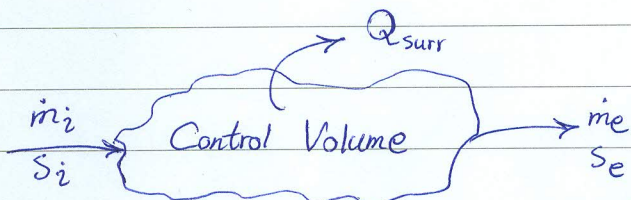 Qsurr
ṁi
Si
Control Volume
ṁe
Se